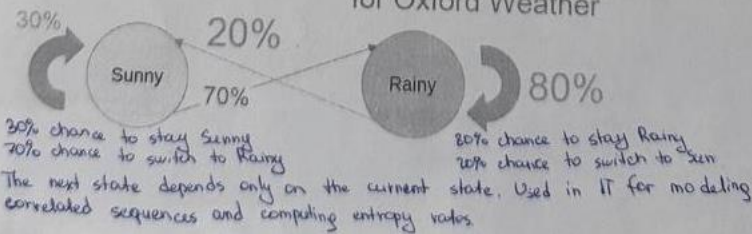 for Oxford Weather
30%
20%
Sunny
70%
Rainy
80%
30% chance to stay Sunny
70% chance to switch to Rainy
80% chance to stay Rainy
20% chance to switch to Sun
The next state depends only on the current state. Used in IT for modeling
correlated sequences and computing entropy rates.